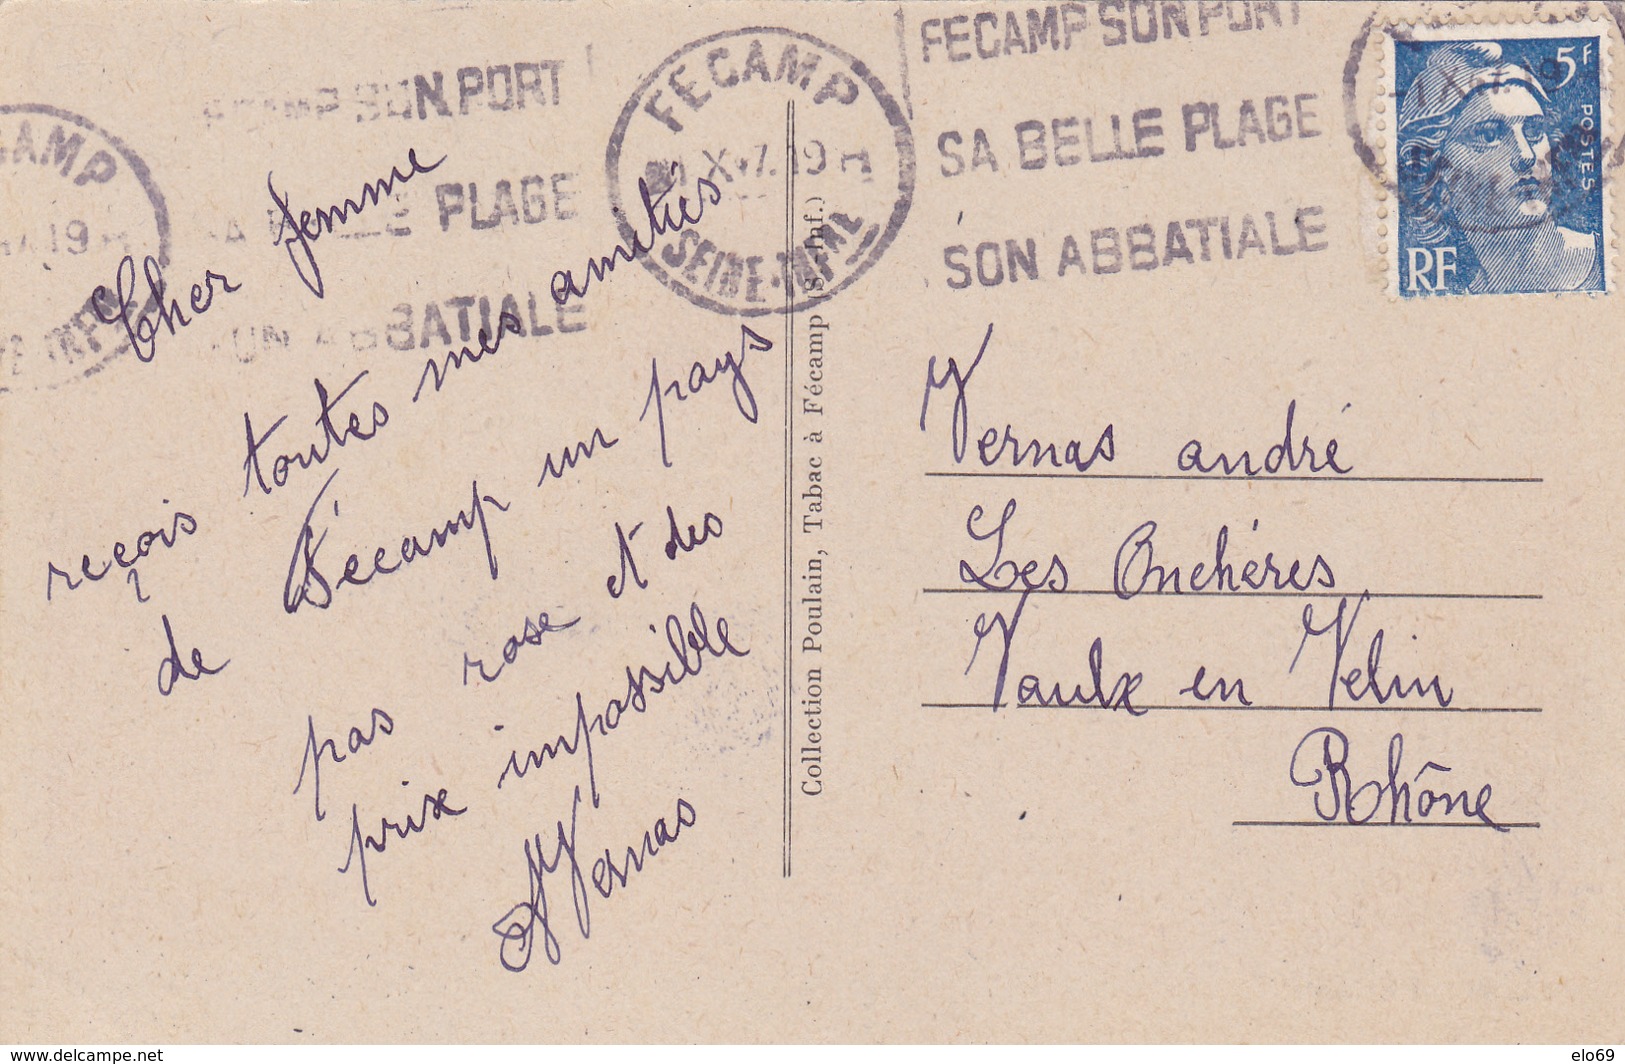 FECAMP SON PORT
SA BELLE PLAGE
SON ABBATIALE
FECAMP
SEINE-INFRE
PORT
PLAGE
ABBATIALE
5F
POSTES
RF
Cher femme
reçois toutes mes amitiés
de Fécamp un pays
pas rose et des
prix impossible
A Vernas
Collection Poulain, Tabac à Fécamp (S.-Inf.)
Vernas andré
Les Onchères
Vaulx en Velin
Rhône
www.delcampe.net
elo69